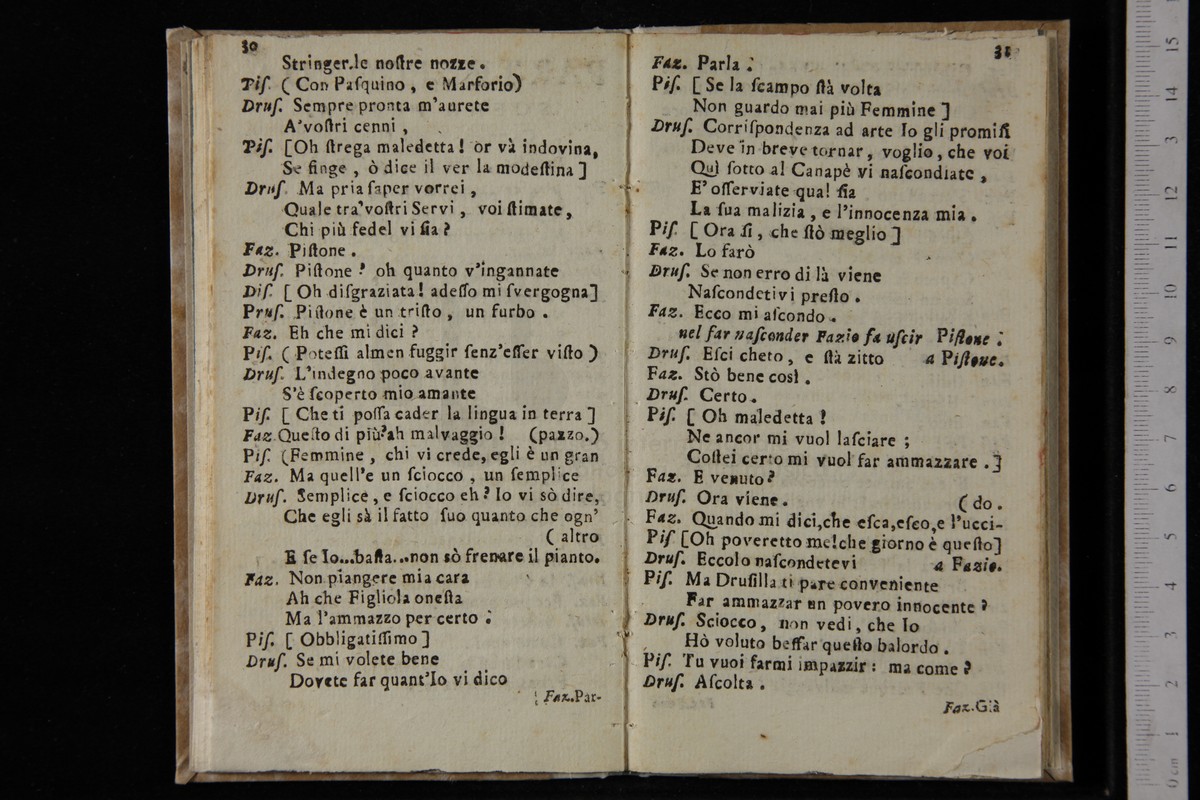 30
Stringer.le noſtre nozze.
Piſ. ( Con Paſquino , e Marforio)
Druſ. Sempre pronta m'aurete
A'voſtri cenni ,
Piſ. [Oh ſtrega maledetta! or và indovina,
Se finge , ò dice il ver la modeſtina ]
Druſ. Ma pria ſaper vorrei ,
Quale tra'voſtri Servi , voi ſtimate,
Chi più fedel vi ſia ?
Faz. Piſtone .
Druſ. Piſtone ? oh quanto v'ingannate
Diſ. [ Oh diſgraziata! adeſſo mi ſvergogna]
Pruſ. Piſtone è un triſto , un furbo .
Faz. Eh che mi dici ?
Piſ. ( Poteſſi almen fuggir ſenz'eſſer viſto )
Druſ. L'indegno poco avante
S'è ſcoperto mio amante
Piſ. [ Che ti poſſa cader la lingua in terra ]
Faz. Queſto di più?ah malvaggio ! (pazzo.)
Piſ. (Femmine , chi vi crede, egli è un gran
Faz. Ma quell'e un ſciocco , un ſemplice
Druſ. Semplice , e ſciocco eh ? Io vi sò dire,
Che egli sà il fatto ſuo quanto che ogn'
( altro
E ſe Io...baſta...non sò frenare il pianto.
Faz. Non piangere mia cara
Ah che Figliola oneſta
Ma l'ammazzo per certo .
Piſ. [ Obbligatiſſimo ]
Druſ. Se mi volete bene
Dovete far quant'Io vi dico
Faz.Par-
31
Faz. Parla .
Piſ. [ Se la ſcampo ſtà volta
Non guardo mai più Femmine ]
Druſ. Corriſpondenza ad arte Io gli promiſi
Deve in breve tornar , voglio , che voi
Quì ſotto al Canapè vi naſcondiate ,
E' oſſerviate qual ſia
La ſua malizia , e l'innocenza mia .
Piſ. [ Ora ſi , che ſtò meglio ]
Faz. Lo farò
Druſ. Se non erro di là viene
Naſcondetivi preſto .
Faz. Ecco mi aſcondo .
nel far naſconder Fazio fa uſcir Piſtone .
Druſ. Eſci cheto , e ſtà zitto a Piſtone.
Faz. Stò bene così .
Druſ. Certo .
Piſ. [ Oh maledetta !
Ne ancor mi vuol laſciare ;
Coſtei certo mi vuol far ammazzare .]
Faz. E venuto ?
Druſ. Ora viene . ( do .
Faz. Quando mi dici,che eſca,eſco,e l'ucci-
Piſ [Oh poveretto me!che giorno è queſto]
Druſ. Eccolo naſcondetevi a Fazio.
Piſ. Ma Druſilla ti pare conveniente
Far ammazzar un povero innocente ?
Druſ. Sciocco , non vedi , che Io
Hò voluto beffar queſto balordo .
Piſ. Tu vuoi farmi impazzir : ma come ?
Druſ. Aſcolta .
Faz.Già
15
14
13
12
11
10
9
8
7
6
5
4
3
2
1
0 cm